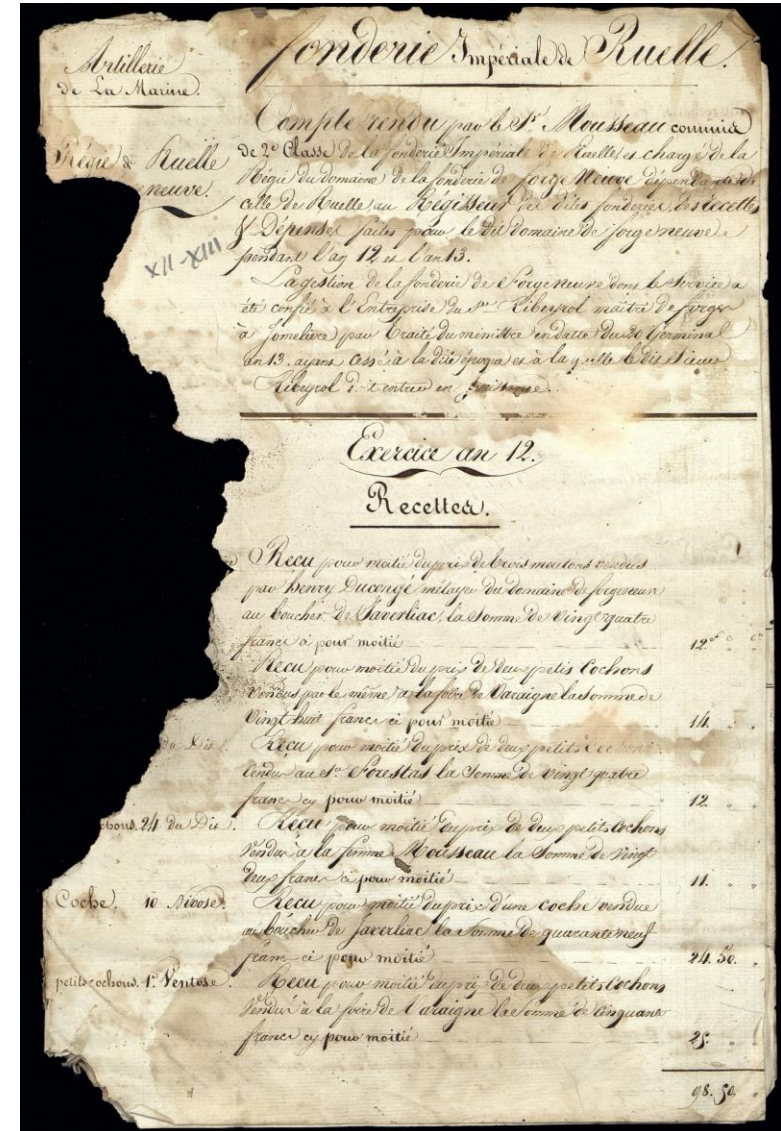 Artillerie
de La Marine.
fonderie Impériale de Ruelle.
Régie de Ruelle
neuve.
XII - XIII
Compte rendu par le Sr. Mousseau commis
de 2e Classe de la fonderie Impériale de Ruelle et chargé de la
Régie du domaine de la fonderie de forge Neuve dépendante de
celle de Ruelle au Régisseur des dites fonderies des recettes
& Dépenses faites pour le dit domaine de forgeneuve
pendant l'an 12 et l'an 13.
La gestion de la fonderie de Forgeneuve dont le Service a
été confié à l'Entreprise du Sr. Ribeyrol maitre de forges
à Jomelière par traité du ministre en datte du 20 Germinal
an 13. ayant cessé à la dite époque et à la quelle le dit Sieur
Ribeyrol est entré en
Exercice an 12.
Recettes.
Recu pour moitié du prix de trois moutons vendus
par henry Ducongé métayer du domaine de forgeneuve
au boucher de Javerliac, la Somme de Vingt quatre
francs ci pour moitié 12f " "
Recu pour moitié du prix de deux petits Cochons
Vendus par le même à la foire de Varaigne la Somme de
Vingt huit francs ci pour moitié 14. " "
du Dit. Recu pour moitié du prix de deux petits Cochons
Vendus au Sr. Forestas la Somme de vingt quatre
francs cy pour moitié 12. " "
cochons. 24 du Dit. Recu pour moitié du prix de deux petits Cochons
Vendus à la femme Mousseau la Somme de Vingt
deux francs ci pour moitié 11. " "
Coche. 10 Nivose. Recu pour moitié du prix d'une coche vendue
au boucher de Javerliac la Somme de quarante neuf
francs ci pour moitié 24. 50. "
petits cochons. 1er Ventose. Recu pour moitié du prix de deux petits Cochons
Vendus à la foire de Varaigne la Somme de Cinquante
francs cy pour moitié 25. " "
98. 50. "